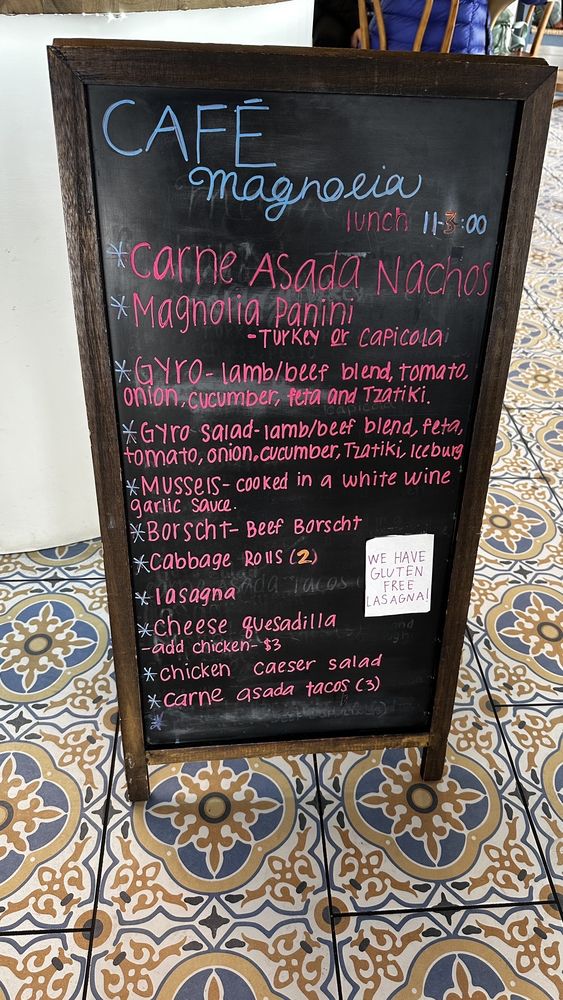 CAFÉ
Magnolia
lunch 11-3:00
*Carne Asada Nachos
*Magnolia Panini
-Turkey or Capicola
*Gyro- lamb/beef blend, tomato,
onion, cucumber, feta and Tzatiki.
*Gyro salad-lamb/beef blend, feta,
tomato, onion, cucumber, Tzatiki, Iceburg
*Mussels- cooked in a white wine
garlic sauce.
*Borscht- Beef Borscht
*Cabbage Rolls (2)
*lasagna
WE HAVE
GLUTEN
FREE
LASAGNA!
*cheese quesadilla
-add chicken- $3
*chicken caeser salad
*carne asada tacos (3)
*